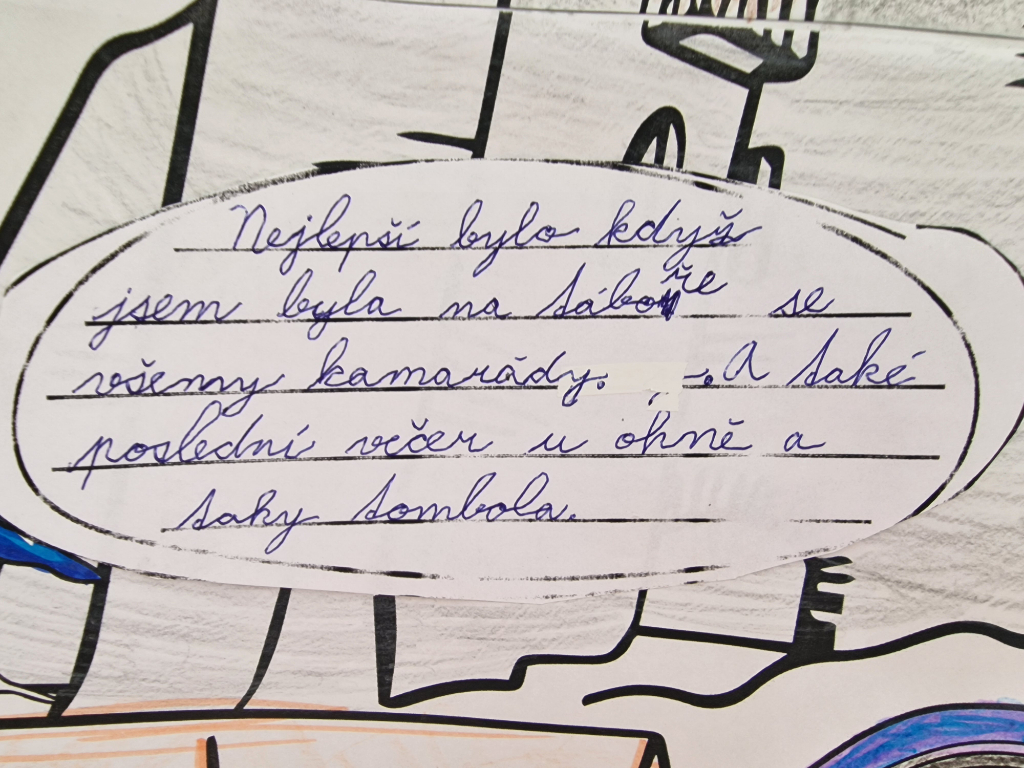 Nejlepší bylo když
jsem byla na táboře se
všemy kamarády. -. A také
poslední večer u ohně a
taky tombola.